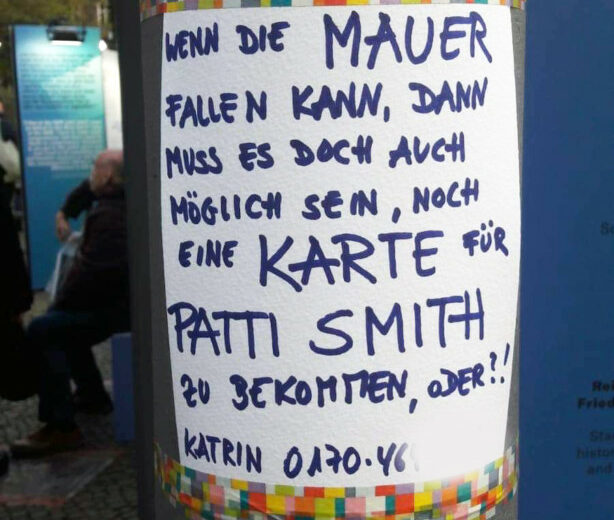 WENN DIE MAUER
FALLEN KANN, DANN
MUSS ES DOCH AUCH
MÖGLICH SEIN, NOCH
EINE KARTE FÜR
PATTI SMITH
ZU BEKOMMEN, ODER?!
KATRIN 0170·464
Rei
Fried
Sta
histo
and